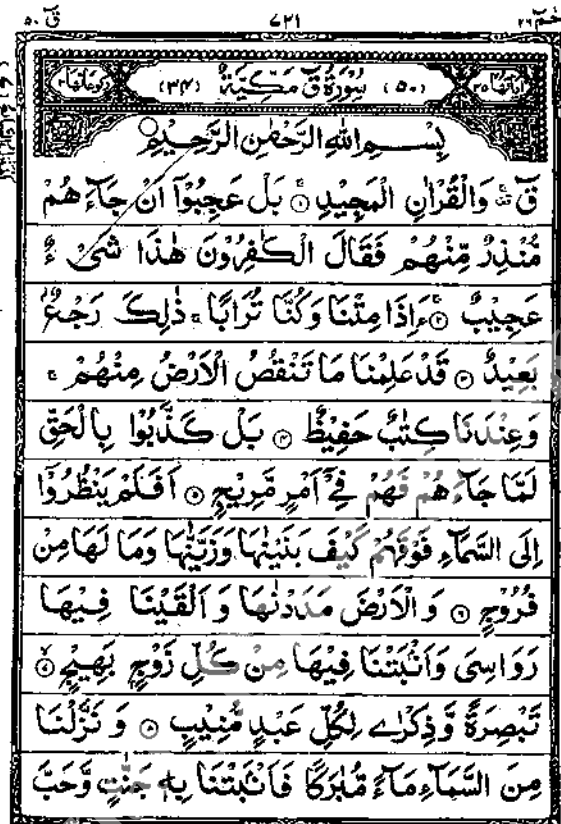 قٓ ٥٠ ٧٢١ حٰمٓ ٢٦
اٰيَاتُهَا ٤٥ (٥٠) سُوْرَةُ قٓ مَكِّيَّةٌ (٣٤) رُكُوْعَاتُهَا ٣
بِسْــمِ اللّٰهِ الرَّحْمٰنِ الرَّحِيْمِ
قٓ ۚ وَالْقُرْاٰنِ الْمَجِيْدِ ۝١ بَلْ عَجِبُوْٓا اَنْ جَآءَهُمْ
مُّنْذِرٌ مِّنْهُمْ فَقَالَ الْكٰفِرُوْنَ هٰذَا شَیْءٌ
عَجِيْبٌ ۝٢ ءَاِذَا مِتْنَا وَكُنَّا تُرَابًا ۚ ذٰلِكَ رَجْعٌۢ
بَعِيْدٌ ۝٣ قَدْ عَلِمْنَا مَا تَنْقُصُ الْاَرْضُ مِنْهُمْ ۚ
وَعِنْدَنَا كِتٰبٌ حَفِيْظٌ ۝٤ بَلْ كَذَّبُوْا بِالْحَقِّ
لَمَّا جَآءَهُمْ فَهُمْ فِیْٓ اَمْرٍ مَّرِيْجٍ ۝٥ اَفَلَمْ يَنْظُرُوْٓا
اِلَى السَّمَآءِ فَوْقَهُمْ كَيْفَ بَنَيْنٰهَا وَزَيَّنّٰهَا وَمَا لَهَا مِنْ
فُرُوْجٍ ۝٦ وَالْاَرْضَ مَدَدْنٰهَا وَاَلْقَيْنَا فِيْهَا
رَوَاسِیَ وَاَنْۢبَتْنَا فِيْهَا مِنْ كُلِّ زَوْجٍۭ بَهِيْجٍ ۝٧
تَبْصِرَةً وَّذِكْرٰى لِكُلِّ عَبْدٍ مُّنِيْبٍ ۝٨ وَنَزَّلْنَا
مِنَ السَّمَآءِ مَآءً مُّبٰرَكًا فَاَنْۢبَتْنَا بِهٖ جَنّٰتٍ وَّحَبَّ